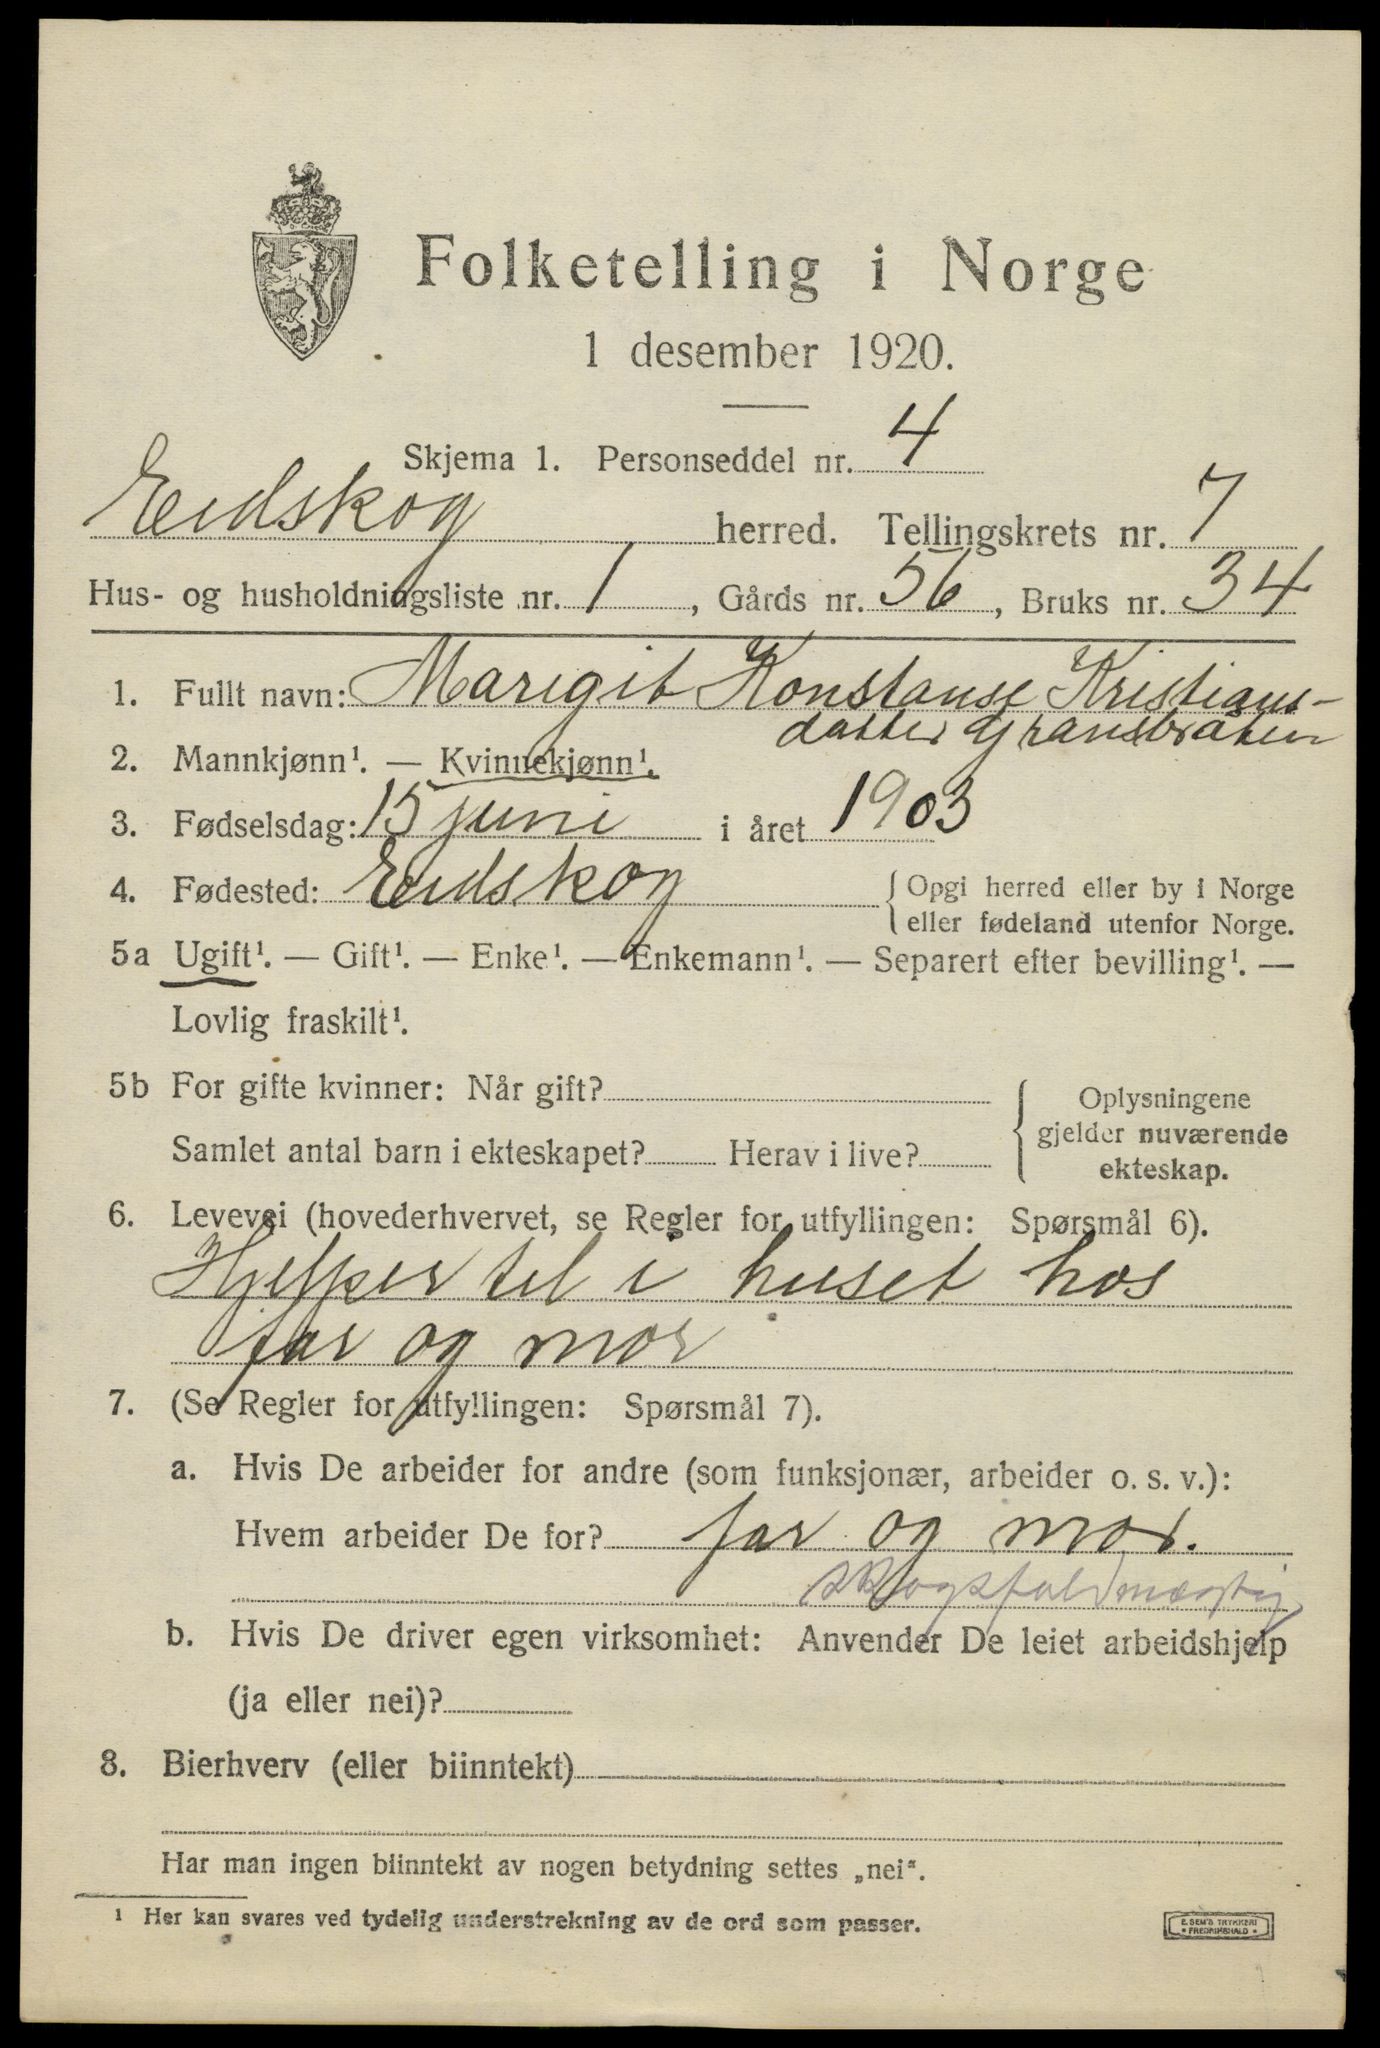 Folketelling i Norge
1 desember 1920.
Skjema 1. Personseddel nr. 4
Eidskog herred. Tellingskrets nr. 7
Hus- og husholdningsliste nr. 1, Gårds nr. 56, Bruks nr. 34
1. Fullt navn: Marigit Konstanse Kristians-
datter Gransbråten
2. Mannkjønn¹. — Kvinnekjønn¹.
3. Fødselsdag: 15 juni i året 1903
4. Fødested: Eidskog {Opgi herred eller by i Norge
eller fødeland utenfor Norge.
5a Ugift¹. — Gift¹. — Enke¹. — Enkemann¹. — Separert efter bevilling¹. —
Lovlig fraskilt¹.
5b For gifte kvinner: Når gift? { Oplysningene
gjelder nuværende
Samlet antal barn i ekteskapet? Herav i live? ekteskap.
6. Levevei (hovederhvervet, se Regler for utfyllingen: Spørsmål 6).
Hjelper til i huset hos
far og mor
7. (Se Regler for utfyllingen: Spørsmål 7).
a. Hvis De arbeider for andre (som funksjonær, arbeider o. s. v.):
Hvem arbeider De for? far og mor.
b. Hvis De driver egen virksomhet: Anvender De leiet arbeidshjelp
(ja eller nei)?
8. Bierhverv (eller biinntekt)
Har man ingen biinntekt av nogen betydning settes „nei“.
¹ Her kan svares ved tydelig understrekning av de ord som passer.
E. SEM'S TRYKKERI
• FREDRIKSHALD •